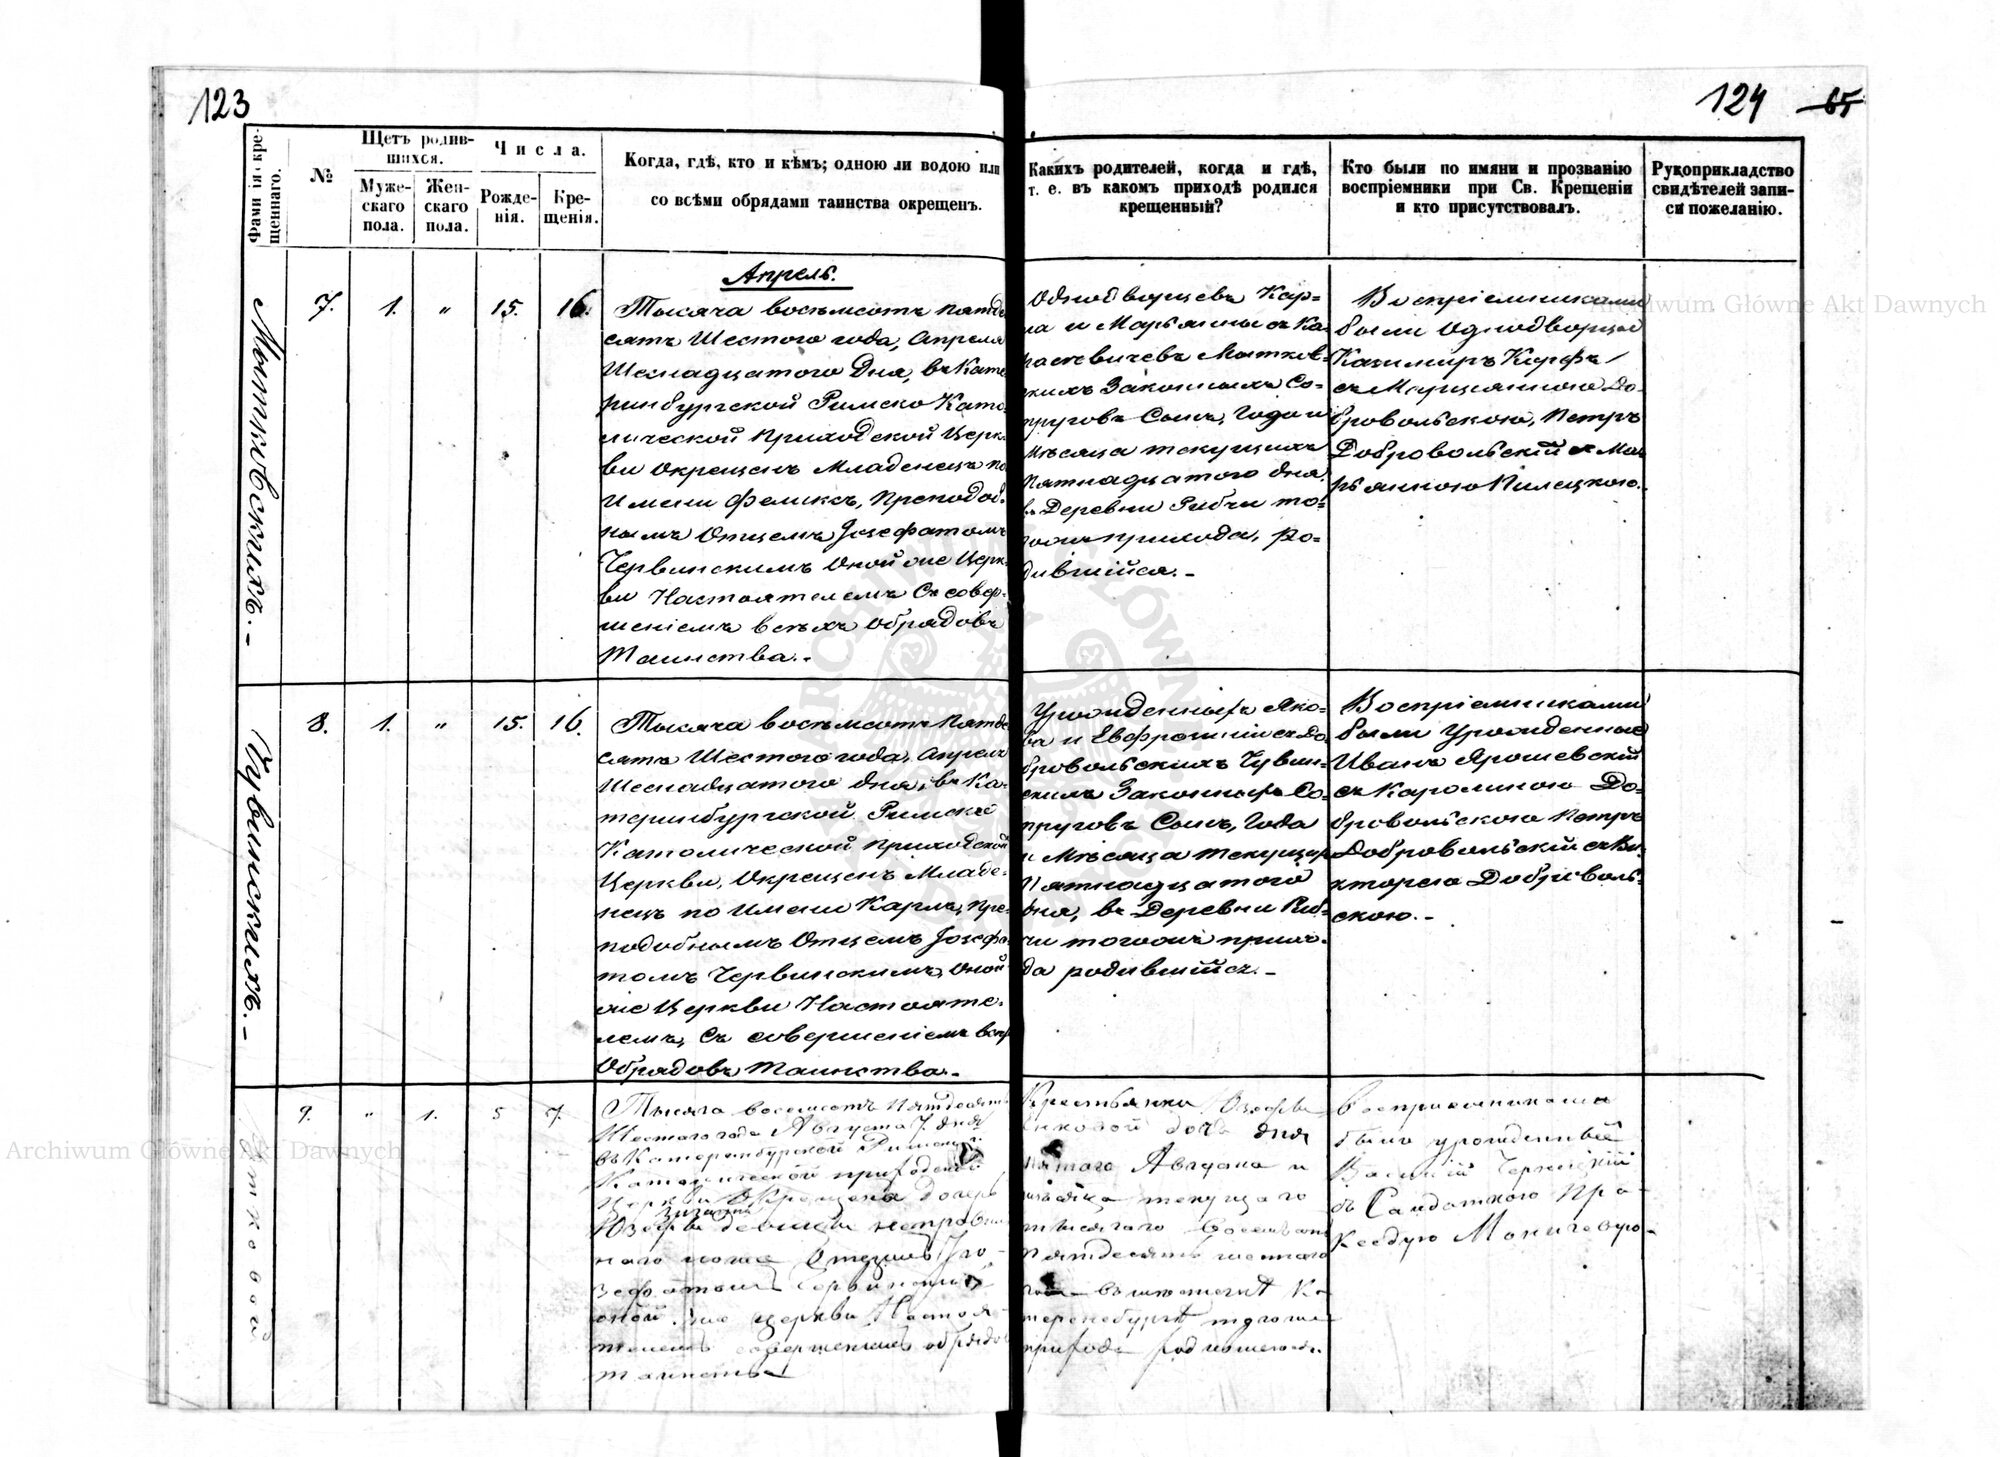 123
124 65
Фамилія крещеннаго.
№
Щетъ родив-
шихся.
Муже-
скаго
пола.
Жен-
скаго
пола.
Числа.
Рожде-
нія.
Кре-
щенія.
Когда, гдѣ, кто и кѣмъ; одною ли водою или
со всѣми обрядами таинства окрещенъ.
Какихъ родителей, когда и гдѣ,
т. е. въ какомъ приходѣ родился
крещенный?
Кто были по имяни и прозванію
воспріемники при Св. Крещеніи
и кто присутствовалъ.
Рукоприкладство
свидѣтелей запи-
си пожеланію.
Мытковскихъ.-
7. 1. „ 15. 16.
Апрель.
Тысяча восемьсотъ пятде
сятъ Шестого года, Апреля
Шеснадцатого Дня, въ Кате
ринбургской Римско Като-
лической приходской Церк-
ви Окрещенъ Младенецъ по
Имени Феликсъ, Преподоб-
нымъ Отцемъ Іозефатомъ
Червинскимъ Оной же Церк-
ви Настоятелемъ Съ совер-
шеніемъ всѣхъ Обрядовъ
Таинства.-
Однодворцевъ Кар-
ла и Марьянны съ Ка-
расевичевъ Мытков-
скихъ Законныхъ Со-
пруговъ Сынъ, Года и
Мѣсяца текущихъ
Пятнадцатого дня,
въ Деревни Рыбчи то-
гожъ прихода, Ро-
дившійся.-
Воспріемниками
были Однодворцы
Казимиръ Корфъ
съ Марцианною До-
бровольскою, Петръ
Добровольскій съ Ма-
рьянною Пилецкою.
Чувинскихъ.-
8. 1. „ 15. 16.
Тысяча восемьсотъ Пятде
сятъ Шестого года, Апреля
Шеснадцатого дня, въ Ка-
теринбургской Римско
Католической Приходской
Церкви, Окрещенъ Младе-
нецъ по Имени Карлъ, Пре-
подобнымъ Отцемъ Іозефа-
томъ Червинскимъ, Оной
же Церкви Настояте-
лемъ, Съ совершеніемъ всѣхъ
Обрядовъ Таинства.-
Урожденныхъ Яко-
ва и Евфрозиніи съ До-
бровольскихъ Чувин-
скихъ Законныхъ Со-
пруговъ Сынъ, Года
и Мѣсяца текущихъ
Пятнадцатого
дня, въ Деревни Рыб-
чи тогожъ прихо-
да родившійся.-
Воспріемниками
были Урожденные
Иванъ Ярошевскій
съ Каролиною До-
бровольскою Петръ
Добровольскій съ Ви-
кторею Доброволь-
скою.-
9. „ 1. 5 7.
Тысяча восемсотъ Пятдесятъ
Шестого года Августа 7 дня
въ Катеринбурской Римско
Католической приходской
Церкви Окрещена дочерь
Юзефы
Отцемъ Іо-
зефатомъ
оной же церкви Настоя-
телемъ совершеніемъ обрядовъ
таинства
Крестьянки Юзефы
дочь дня
пятого Августа и
мѣсяца текущаго
тысячаго восемьсотъ
Пятдесятъ шестого
года въ мѣстечкѣ Ка-
теренебургѣ тогоже
прихода родившаяся.
восприемниками
были урожденный
Василій
съ Солдаткою Пра-
кседую
Archiwum Główne Akt Dawnych
Archiwum Główne Akt Dawnych